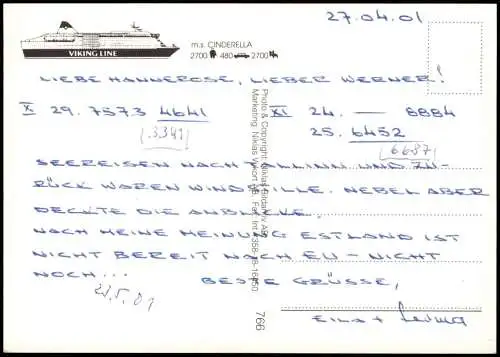 27.04.01
m.s. CINDERELLA
2700 480 2700
VIKING LINE
LIEBE HANNEROSE, LIEBER WERNER!
XI 29. 7573 4641 XI 24. — 8884
(3341) 25. 6452
(6687)
SEEREISEN NACH TALLINN UND ZU-
RÜCK WAREN WINDSTILLE. NEBEL ABER
DECKTE DIE ANBLICKE.
NACH MEINE MEINUNG ESTLAND IST
NICHT BEREIT NACH EU - NICHT
NOCH... BESTE GRÜSSE,
21.5.01
EILA +
Photo & Copyright: Niklas
Marketing: Niklas
766